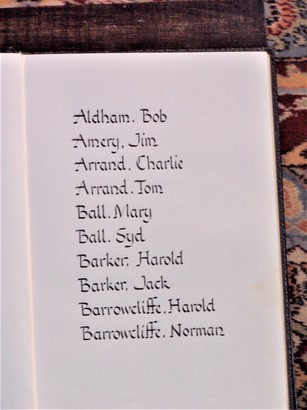 Aldham. Bob
Amery, Jim
Arrand. Charlie
Arrand. Tom
Ball. Mary
Ball. Syd
Barker, Harold
Barker, Jack
Barrowcliffe. Harold
Barrowcliffe. Norman